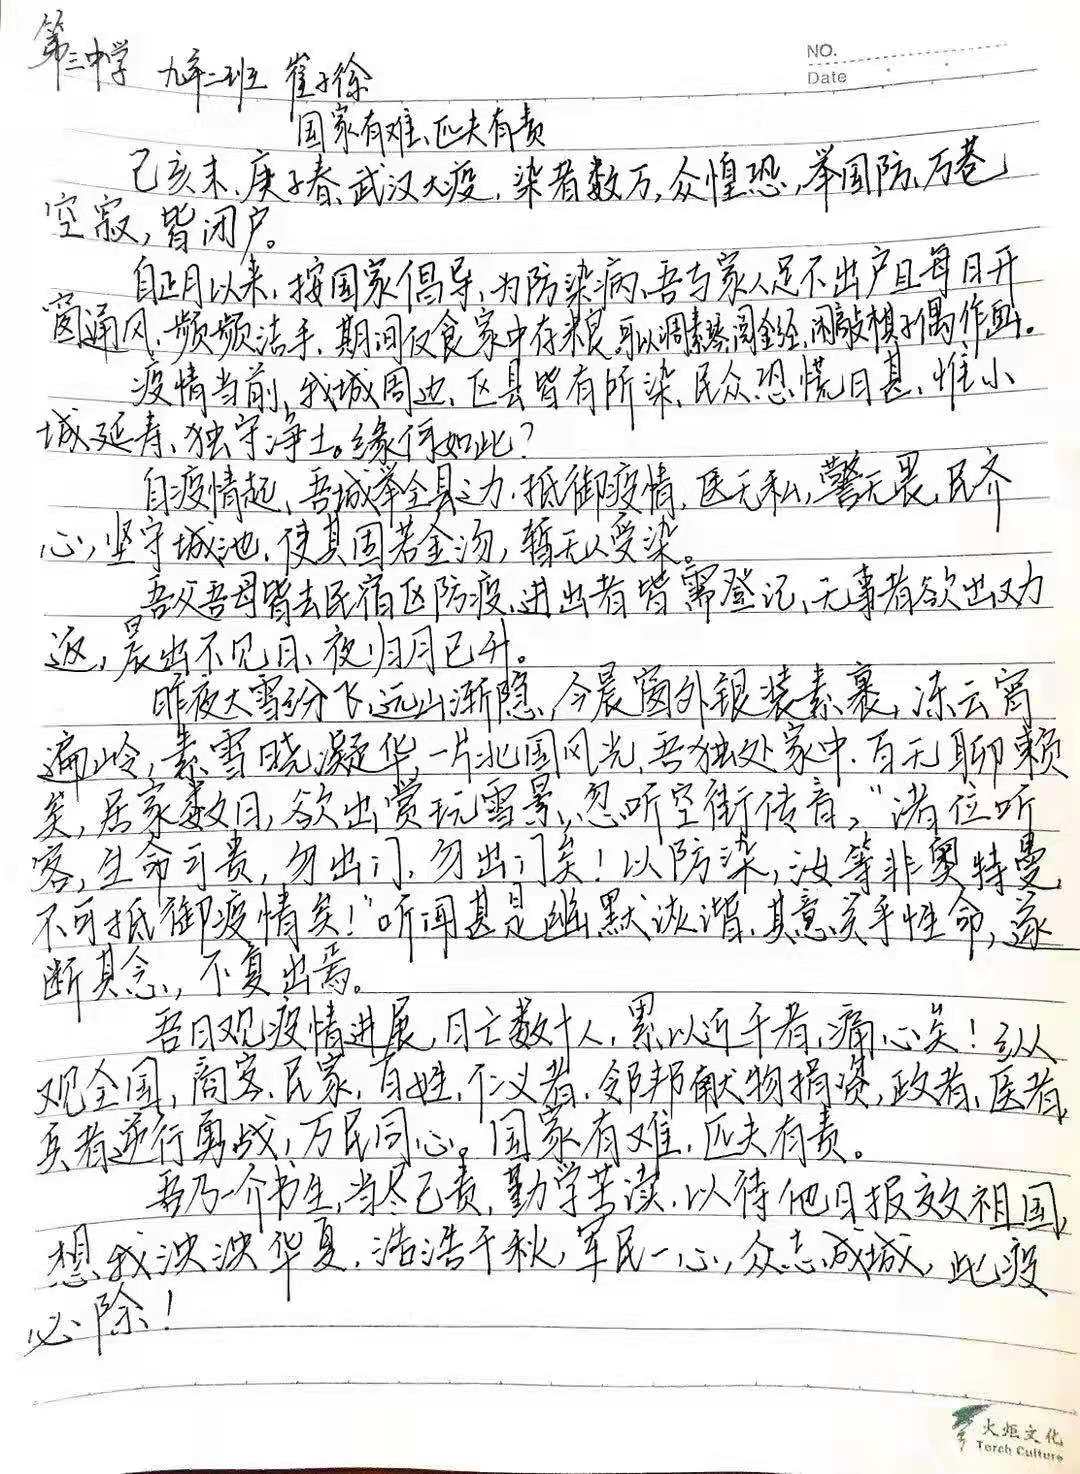 第三中学 九年二班 崔子徐
NO.
Date
国家有难、匹夫有责
己亥末、庚子春、武汉大疫，染者数万，众惶恐，举国防、万巷
空寂，皆闭户。
自正月以来，按国家倡导，为防染病、吾与家人足不出户且每日开
窗通风、频频洁手、期间仅食家中存粮，可以调素琴、阅金经、闲敲棋子偶作画。
疫情当前、我城周边、区县皆有所染、民众恐慌日甚、惟小
城延寿、独守净土。缘何如此？
自疫情起、吾城举全县之力，抵御疫情，医无私，警无畏，民齐
心，坚守城池，使其固若金汤，暂无人受染。
吾父吾母皆去民宿区防疫，进出者皆需登记、无事者欲出又力
返，晨出不见日、夜归月已升。
昨夜大雪纷飞，远山渐隐，今晨窗外银装素裹，冻云宵
遍岭，素雪晓凝华，一片北国风光，吾独处家中，百无聊赖
矣，居家数日，欲出赏玩雪景，忽听空街传音，“诸位听
客，生命可贵，勿出门，勿出门矣！以防染，汝等非奥特曼，
不可抵御疫情矣！”听闻甚是幽默诙谐，其意关乎性命，遂
断其念，不复出焉。
吾日观疫情进展，日亡数十人，累以近千者，痛心矣！纵
观全国，商客、民家、百姓，仁义者，邻邦献物捐资，政者、医者、
兵者逆行勇战，万民同心。国家有难，匹夫有责。
吾乃一介书生，当尽己责，勤学苦读，以待他日报效祖国，
想我泱泱华夏，浩浩千秋，军民一心，众志成城，此疫
必除！
火炬文化
Torch Culture